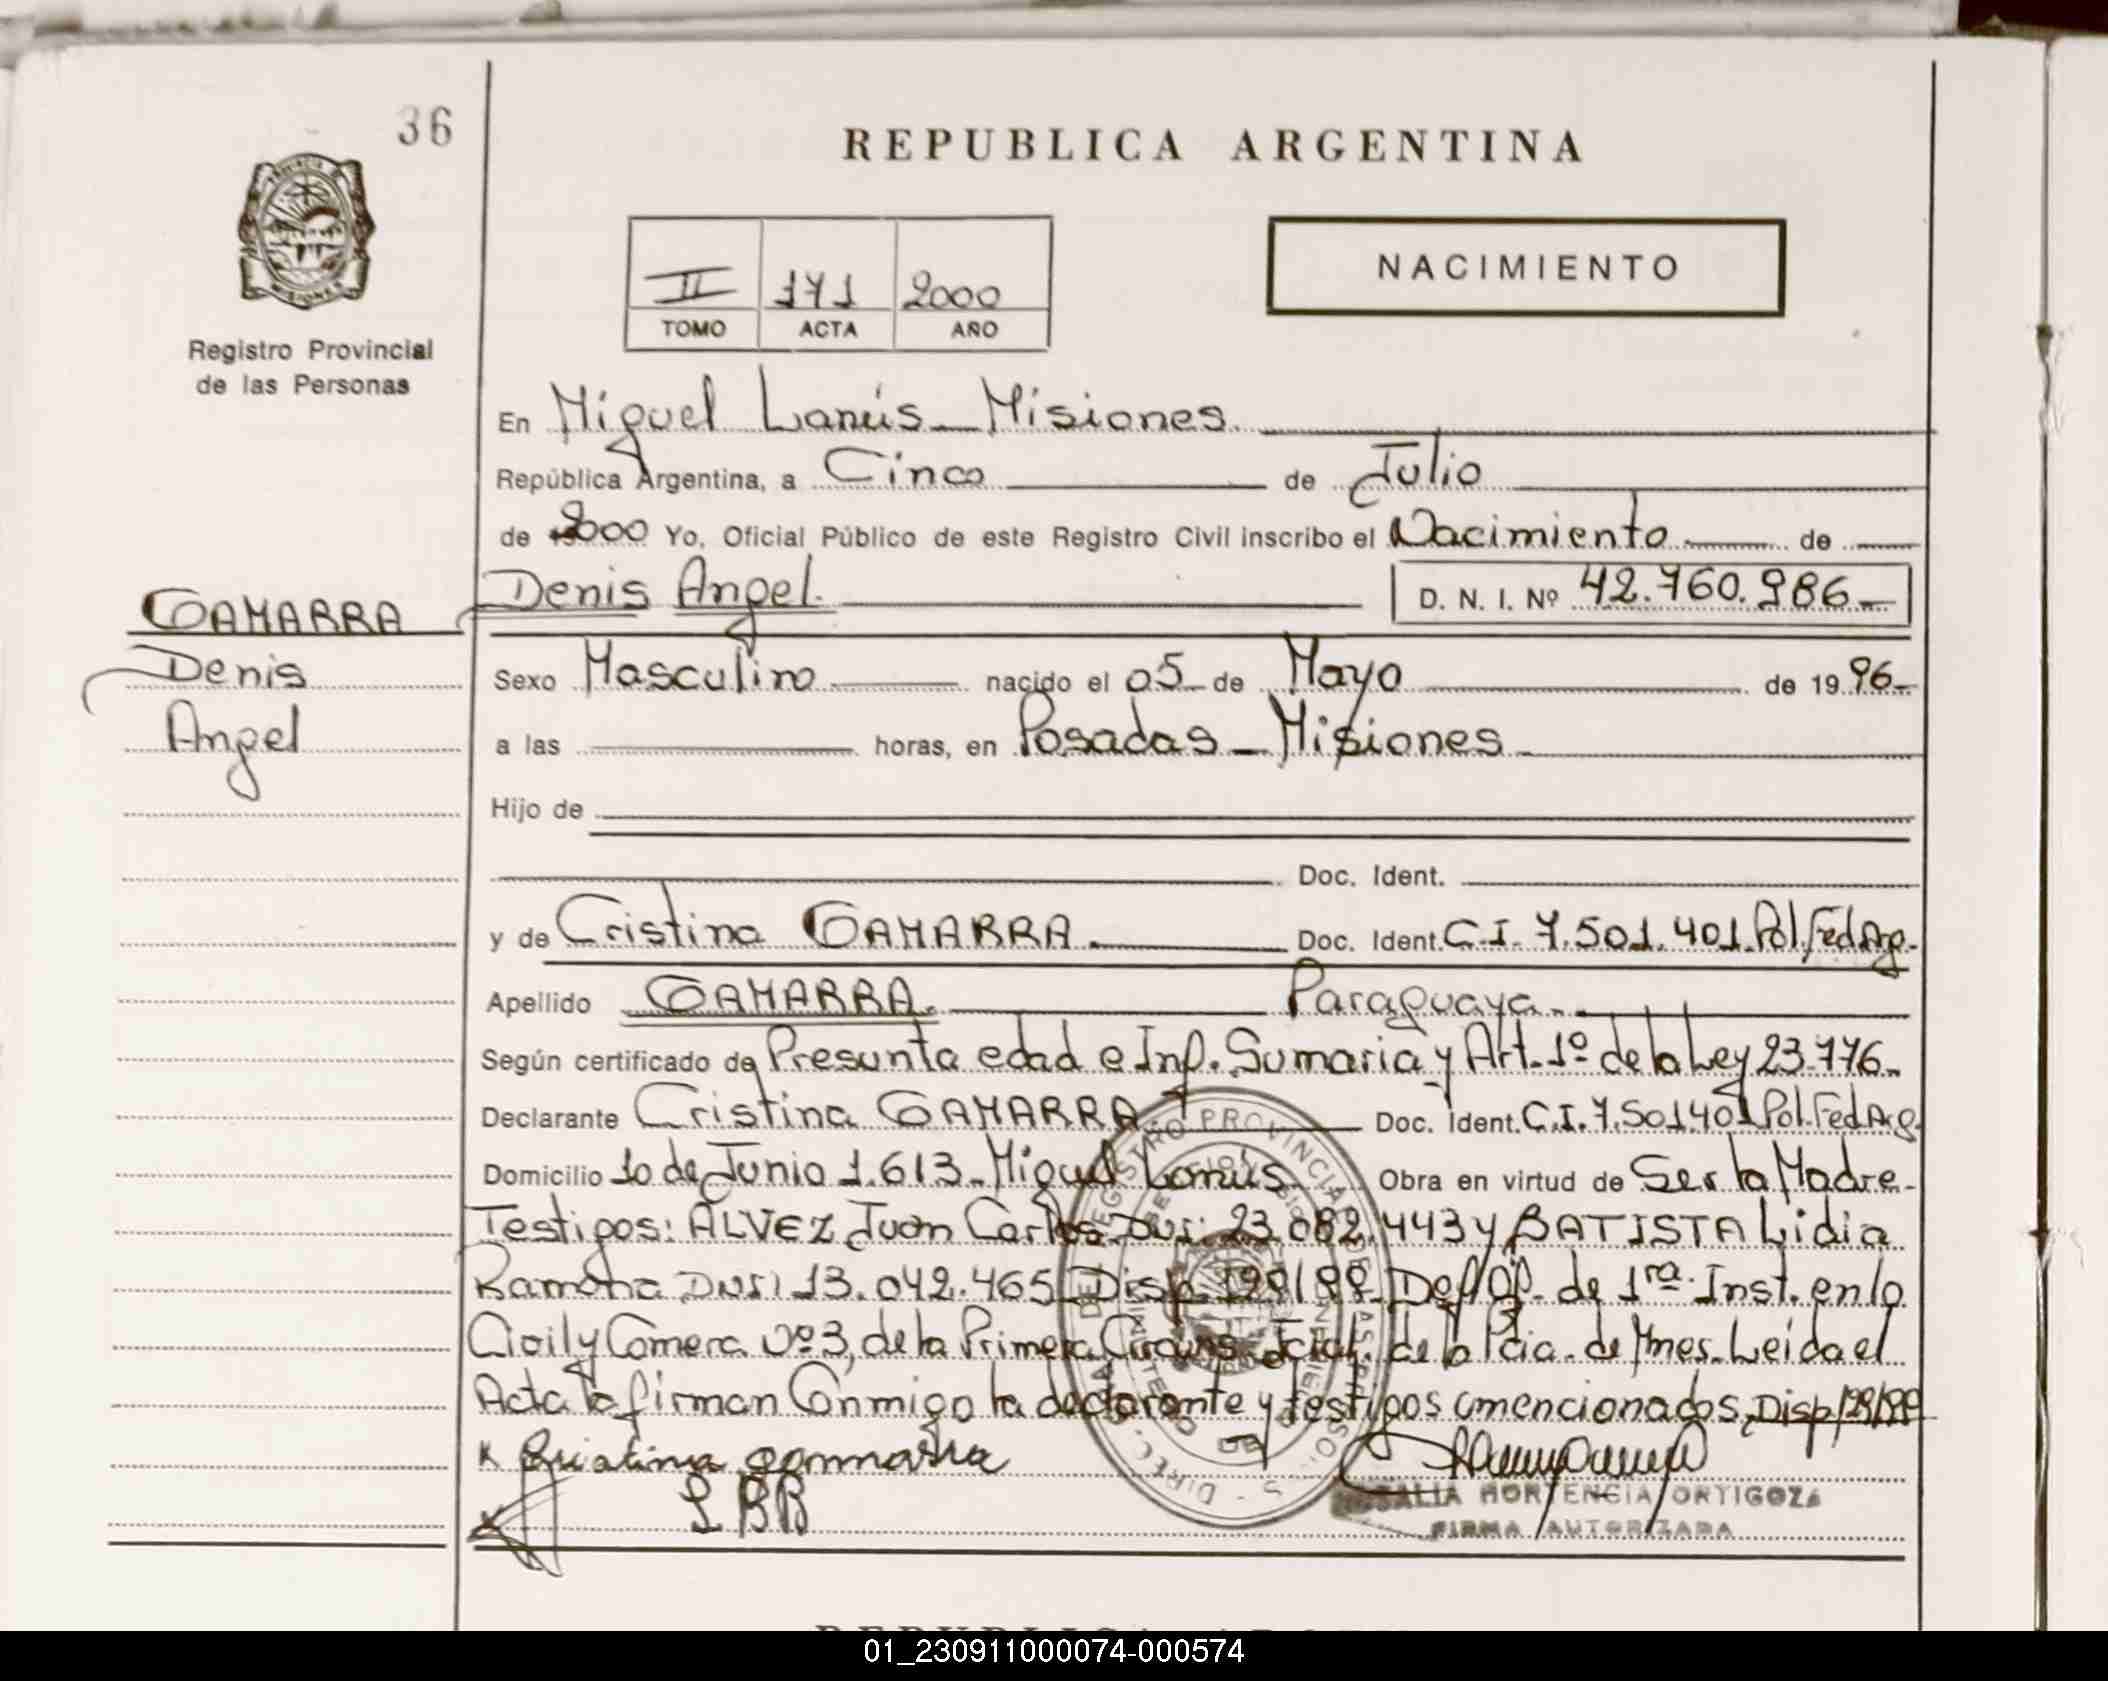 36
REPUBLICA ARGENTINA
PROVINCIA
MISIONES
Registro Provincial
de las Personas
II 171 2000
TOMO ACTA AÑO
NACIMIENTO
En Miguel Lanús - Misiones
República Argentina, a Cinco de Julio
de 2000 Yo, Oficial Público de este Registro Civil inscribo el Nacimiento de
GAMARRA Denis Angel. D. N. I. Nº 42.760.986
Denis
Angel
Sexo Masculino nacido el 05 de Mayo de 1996
a las horas, en Posadas - Misiones
Hijo de
Doc. Ident.
y de Cristina GAMARRA Doc. Ident. C.I. 7.501.401 Pol. Fed Arg.
Apellido GAMARRA. Paraguaya.
Según certificado de Presunta edad e Inf. Sumaria y Art. 1º de la Ley 23.776
Declarante Cristina GAMARRA Doc. Ident. C.I. 7.501.401 Pol. Fed Arg
Domicilio 10 de Junio 1.613 - Miguel Lanús Obra en virtud de Ser la Madre
Testigos: ALVEZ Juan Carlos DNI: 23.082.443 y BATISTA Lidia
Ramona DNI: 13.042.465 Disp. de 1ra. Inst. en lo
Civil y Comerc. Nº 3, de la Primera de la Pcia. de Mnes. Leida el
Acta la firman Conmigo la declarante y testigos mencionados, Disp
x Cristina gammarra
L BB
ROSALIA HORTENCIA ORTIGOZA
FIRMA AUTORIZADA
01_230911000074-000574